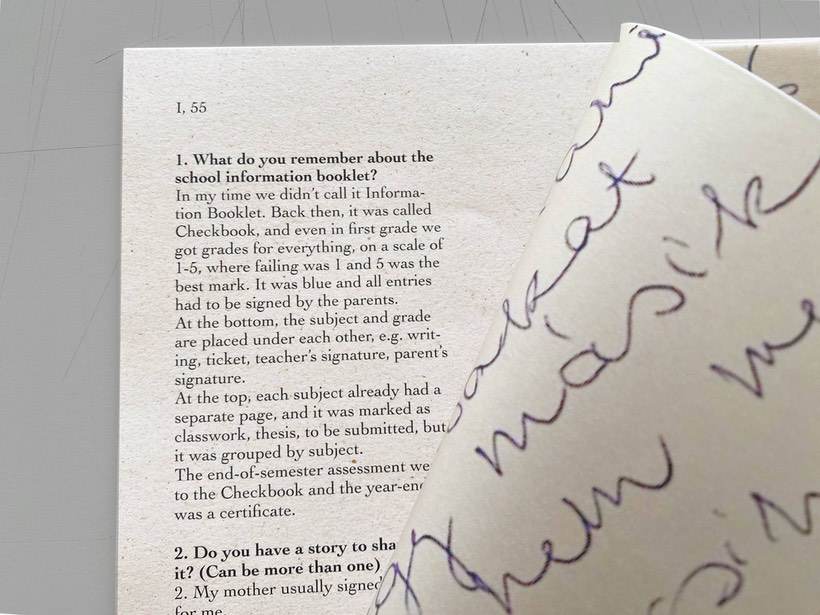 I, 55
1. What do you remember about the
school information booklet?
In my time we didn't call it Informa-
tion Booklet. Back then, it was called
Checkbook, and even in first grade we
got grades for everything, on a scale of
1-5, where failing was 1 and 5 was the
best mark. It was blue and all entries
had to be signed by the parents.
At the bottom, the subject and grade
are placed under each other, e.g. writ-
ing, ticket, teacher's signature, parent's
signature.
At the top, each subject already had a
separate page, and it was marked as
classwork, thesis, to be submitted, but
it was grouped by subject.
The end-of-semester assessment we
to the Checkbook and the year-en
was a certificate.
2. Do you have a story to sha
it? (Can be more than one)
2. My mother usually signed
for me
másik